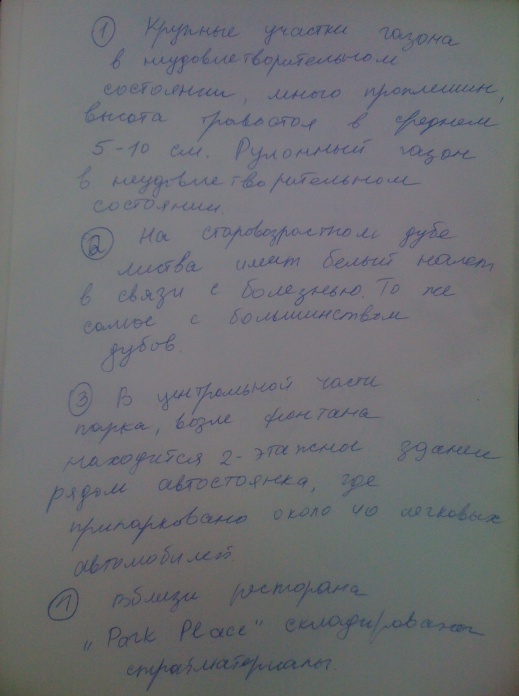 ① Крупные участки газона
в неудовлетворительном
состоянии, много проплешин,
высота травостоя в среднем
5-10 см. Рулонный газон
в неудовлетворительном
состоянии.
② На старовозрастном дубе
листва имеет белый налет
в связи с болезнью. То же
самое с большинством
дубов.
③ В центральной части
парка, возле фонтана
находится 2-этажное здание
рядом автостоянка, где
припарковано около 40 легковых
автомобилей
④ Вблизи ресторана
„Park Place" складированы
стройматериалы.